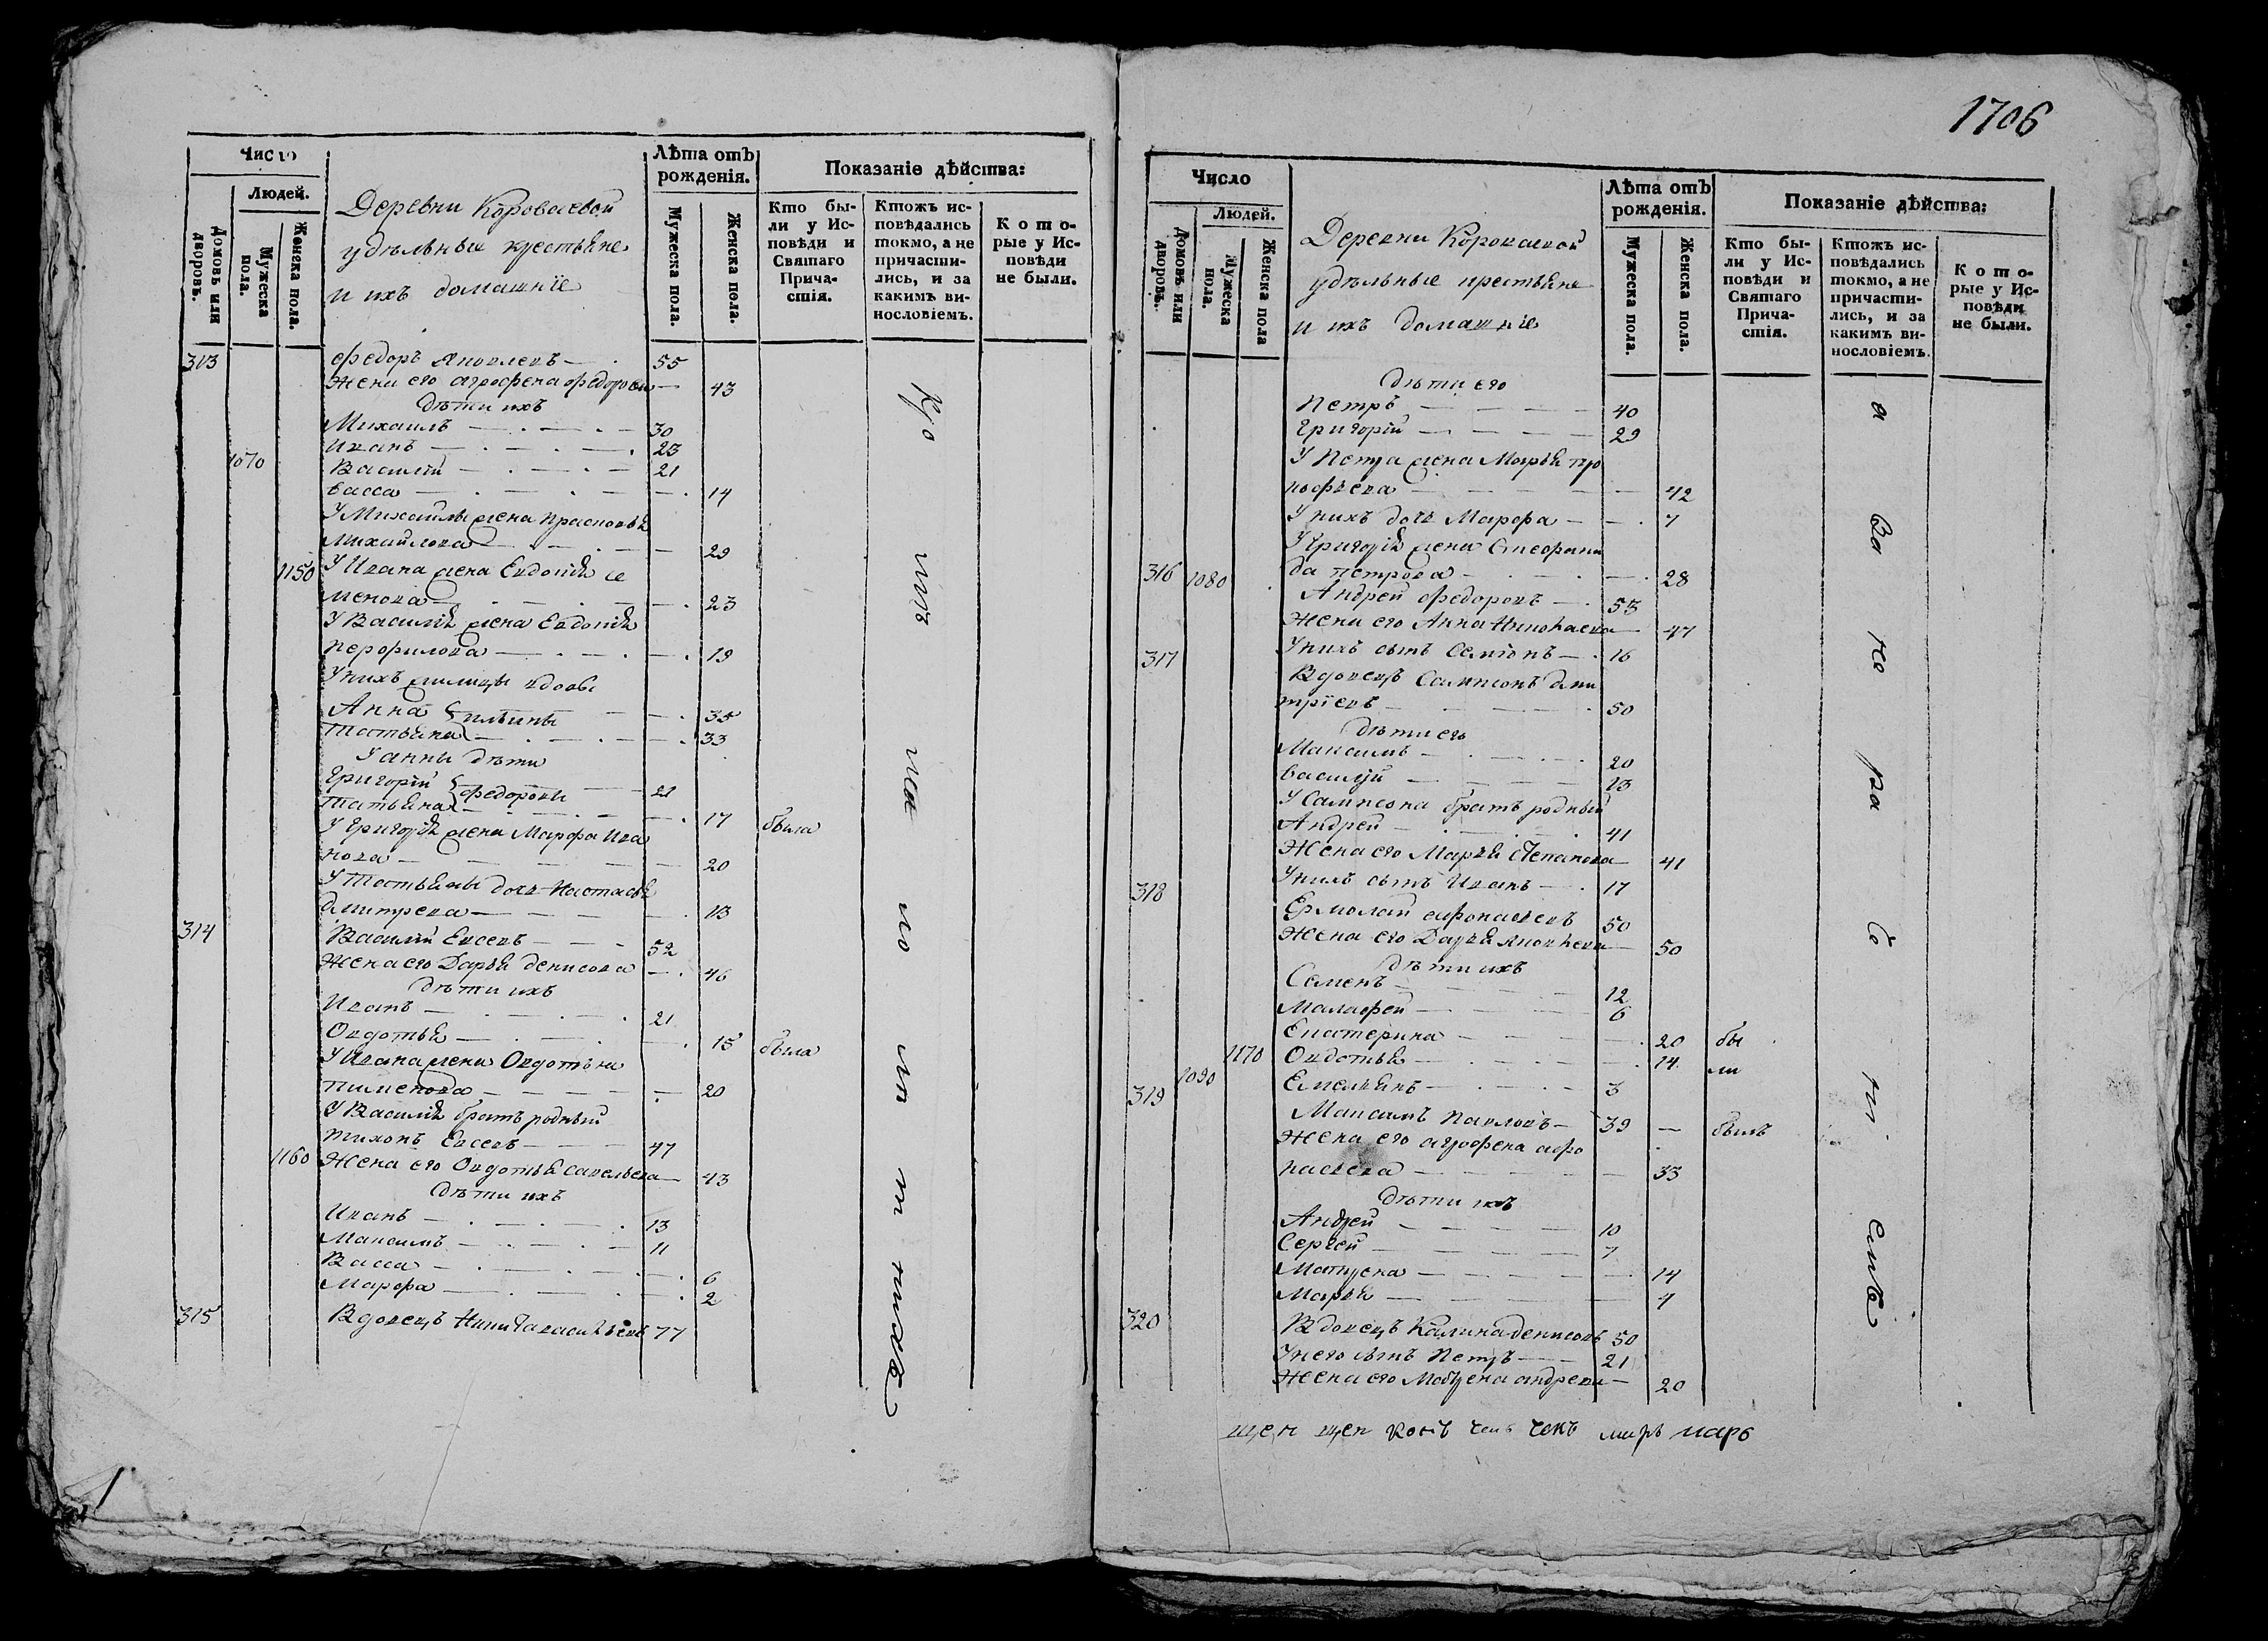 Число
Людей.
Домовъ или дворовъ.
Мужеска пола.
Женска пола.
Деревни Короваевой
удѣльные крестьяне
и ихъ домашніе
Лѣта отъ рожденія.
Мужеска пола.
Женска пола.
Показаніе дѣйства:
Кто были у Исповѣди и Святаго Причастія.
Ктожъ исповѣдались токмо, а не причастились, и за какимъ винословіемъ.
Которые у Исповѣди не были.
313 Федоръ Яковлевъ — 55
Жена его агрофена федорова — 43
Дѣти ихъ
Михаилъ — 30
Иванъ — 23
1070 Василій — 21
васса — 14
У Михаилы жена Прасковья
Михайлова — 29
1150 У Ивана жена Евдокія се
менова — 23
У Василія жена Евдокія
Перофилова — 19
У нихъ жилицы вдовы
Анна — 35
Татьяна — 33
У анны дѣти
Григорій федоровы — 21
Татьяна — 17 была
У Григорія жена Марфа Ива
нова — 20
У Татьяны дочь Настасья
дмитрева — 13
314 Василій Евсевъ — 52
Жена его Дарья денисова — 46
Дѣти ихъ
Иванъ — 21
Овдотья — 15 была
У Ивана жена Овдотья
пименова — 20
У Василія братъ родный
тихонъ Евсевъ — 47
1160 Жена его Овдотья савельева — 43
Дѣти ихъ
Иванъ — 13
Максимъ — 11
Васса — 6
Марфа — 2
315 Вдовецъ Никита васильевъ 77
1706
Число
Людей.
Домовъ или дворовъ.
Мужеска пола.
Женска пола
Деревни Короваевой
удѣльные крестьяне
и ихъ домашніе
Лѣта отъ рожденія.
Мужеска пола.
Женска пола.
Показаніе дѣйства:
Кто были у Исповѣди и Святаго Причастія.
Ктожъ исповѣдались токмо, а не причастились, и за какимъ винословіемъ.
Которые у Исповѣди не были.
Дѣти его
Петръ — 40
Григорій — 29
У Петра жена Марья про
кофьева — 42
У нихъ дочь Марфа — 7
У Григорія жена Стефани
да петрова — 28
316 1080 Андрей федоровъ — 53
Жена его Анна Николаева — 47
У нихъ сынъ Семіонъ — 16
317 Вдовецъ Сампсонъ дми
тріевъ — 50
Дѣти его
Максимъ — 20
василій — 13
У Сампсона братъ родный
Андрей — 41
Жена его Марья степанова — 41
У нихъ сынъ Иванъ — 17
318 Ермолай афонасьевъ 50
Жена его Дарья яковлева — 50
Дѣти ихъ
Семенъ — 12
Малафей — 6
Екатерина — 20 бы
1170 Овдотья — 14 ли
1090 Емельянъ — 3
319 Максимъ Павловъ — 39 — былъ
Жена его агрофена афо
насьева — 33
Дѣти ихъ
Андрей — 10
Сергей — 7
Матрена — 14
Марья — 4
320 Вдовецъ Калина денисовъ 50
У него сынъ Петръ — 21
Жена его Мотрена андреева — 20